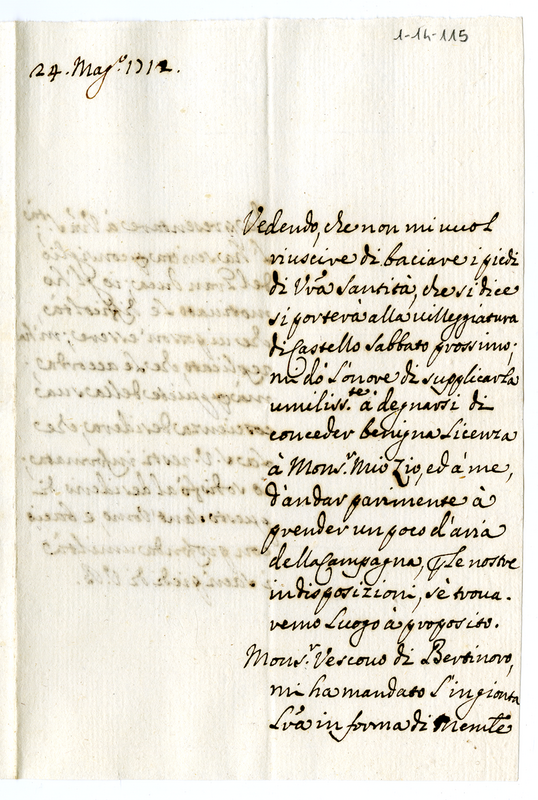 1-14-115
24. Mag.º 1712.
Vedendo, che non mi vuol
riuscire di baciare i piedi
di Vrã Santità, che si dice
si porterà alla villeggiatura
di Castello Sabbato prossimo;
mi dò l'onore di supplicarla
umiliss.te à degnarsi di
conceder benigna Licenza
à Mons.r mio Zio, ed à me,
d'andar parimente à
prender un poco d'aria
della Campagna, se le nostre
indisposizioni, se trova-
remo Luogo à proposito.
Mons.r Vescovo di Bertinoro,
mi ha mandato l'ingionta
Lrã in forma di Memle